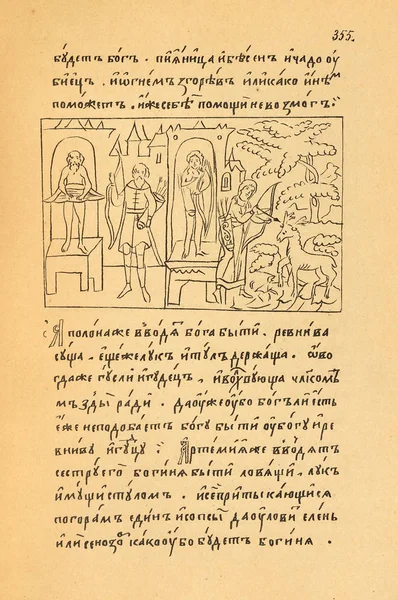 355.
будетъ богъ . пиѧница и бѣсенъ и чадо оу
биецъ . и ѡгнемъ згорѣвъ и ликако инѣм
поможетъ . иже себѣ помощи невозмогъ :
Аполона же вводѧ бога быти . ревнива
суща . еще же лукъ и тулъ держаща . ѡво
гда же гусли и гудецъ ,
мъзды ради . даоуже оубо богъ ли есть
еже неподобаетъ богу быти оубогу и ре
вниву и гудцу : Артемию же вводѧтъ
сестру его богинѧ быти ловѧщи , лукъ
имущи стуломъ . и сеи притыкающисѧ
погорамъ единъ и сопсы да оуловитъ елень
или како оубо будетъ богинѧ .